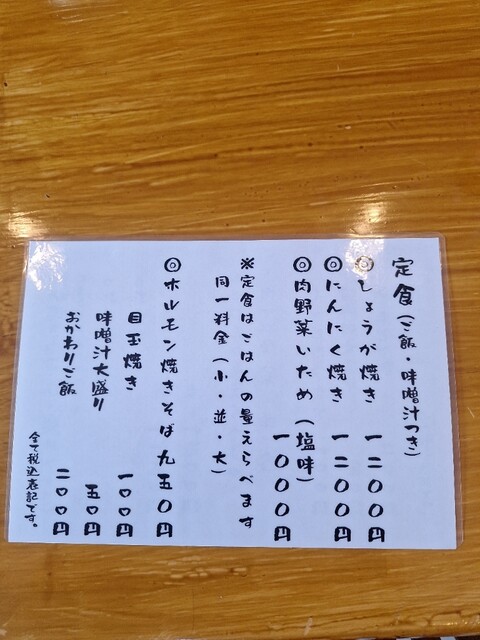 定食（ご飯・味噌汁つき）
◎しょうが焼き 一二〇〇円
◎にんにく焼き 一二〇〇円
◎肉野菜いため（塩味） 一〇〇〇円
※定食はごはんの量えらべます
同一料金（小・並・大）
◎ホルモン焼きそば 九五〇円
目玉焼き 一〇〇円
味噌汁大盛り 五〇円
おかわりご飯 二〇〇円
全て税込表記です。